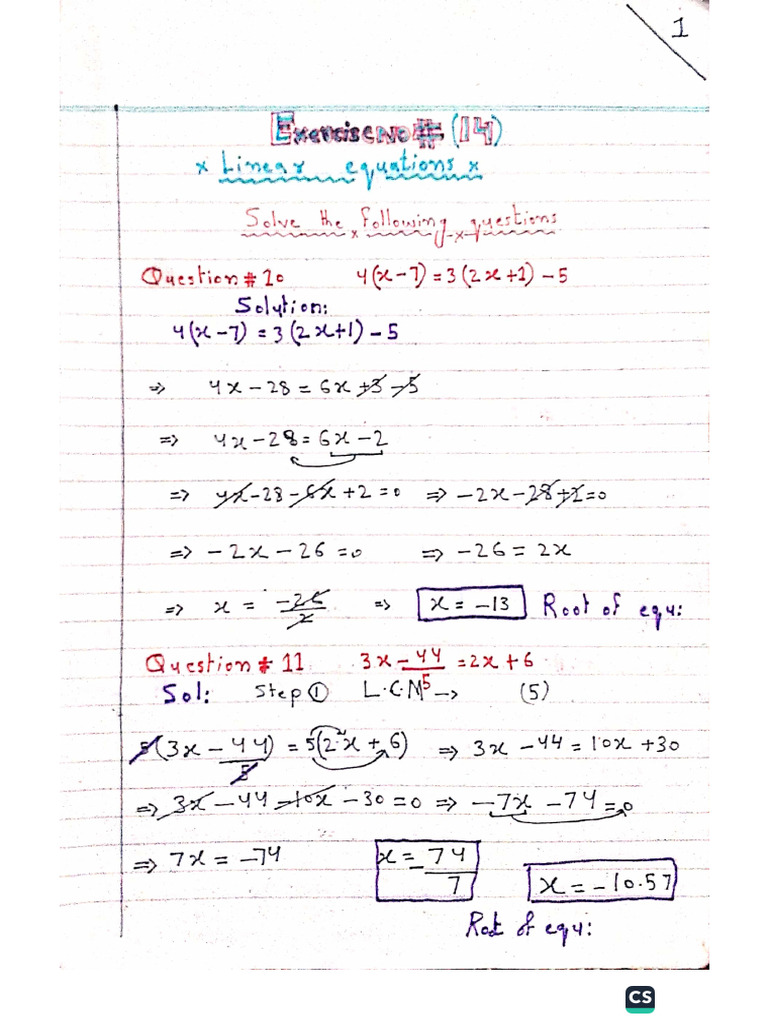 1
Exercise No # (14)
x Linear equations x
Solve the following questions
Question # 10 4(x-7) = 3(2x+1) - 5
Solution:
4(x-7) = 3(2x+1) - 5
=> 4x - 28 = 6x + 3 - 5
=> 4x - 28 = 6x - 2
=> 4x - 28 - 6x + 2 = 0 => -2x - 28 + 2 = 0
=> -2x - 26 = 0 => -26 = 2x
=> x = -26/2 => x = -13 Root of equ:
Question # 11 3x - 44/5 = 2x + 6
Sol: Step ① L.C.M -> (5)
5(3x - 44)/5 = 5(2x + 6) => 3x - 44 = 10x + 30
=> 3x - 44 - 10x - 30 = 0 => -7x - 74 = 0
=> 7x = -74 x = -74/7 x = -10.57
Root of equ:
CS